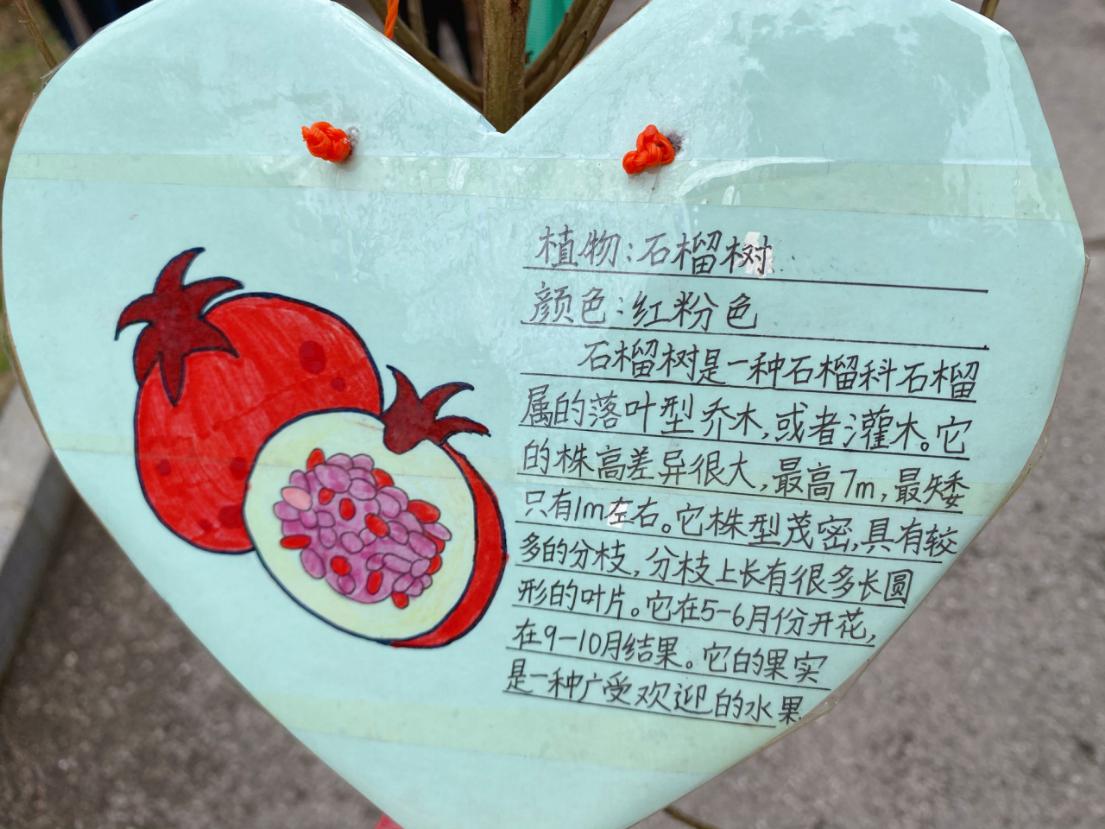 植物:石榴树
颜色:红粉色
石榴树是一种石榴科石榴
属的落叶型乔木,或者灌木。它
的株高差异很大,最高7m,最矮
只有1m左右。它株型茂密,具有较
多的分枝,分枝上长有很多长圆
形的叶片。它在5-6月份开花,
在9-10月结果。它的果实
是一种广受欢迎的水果